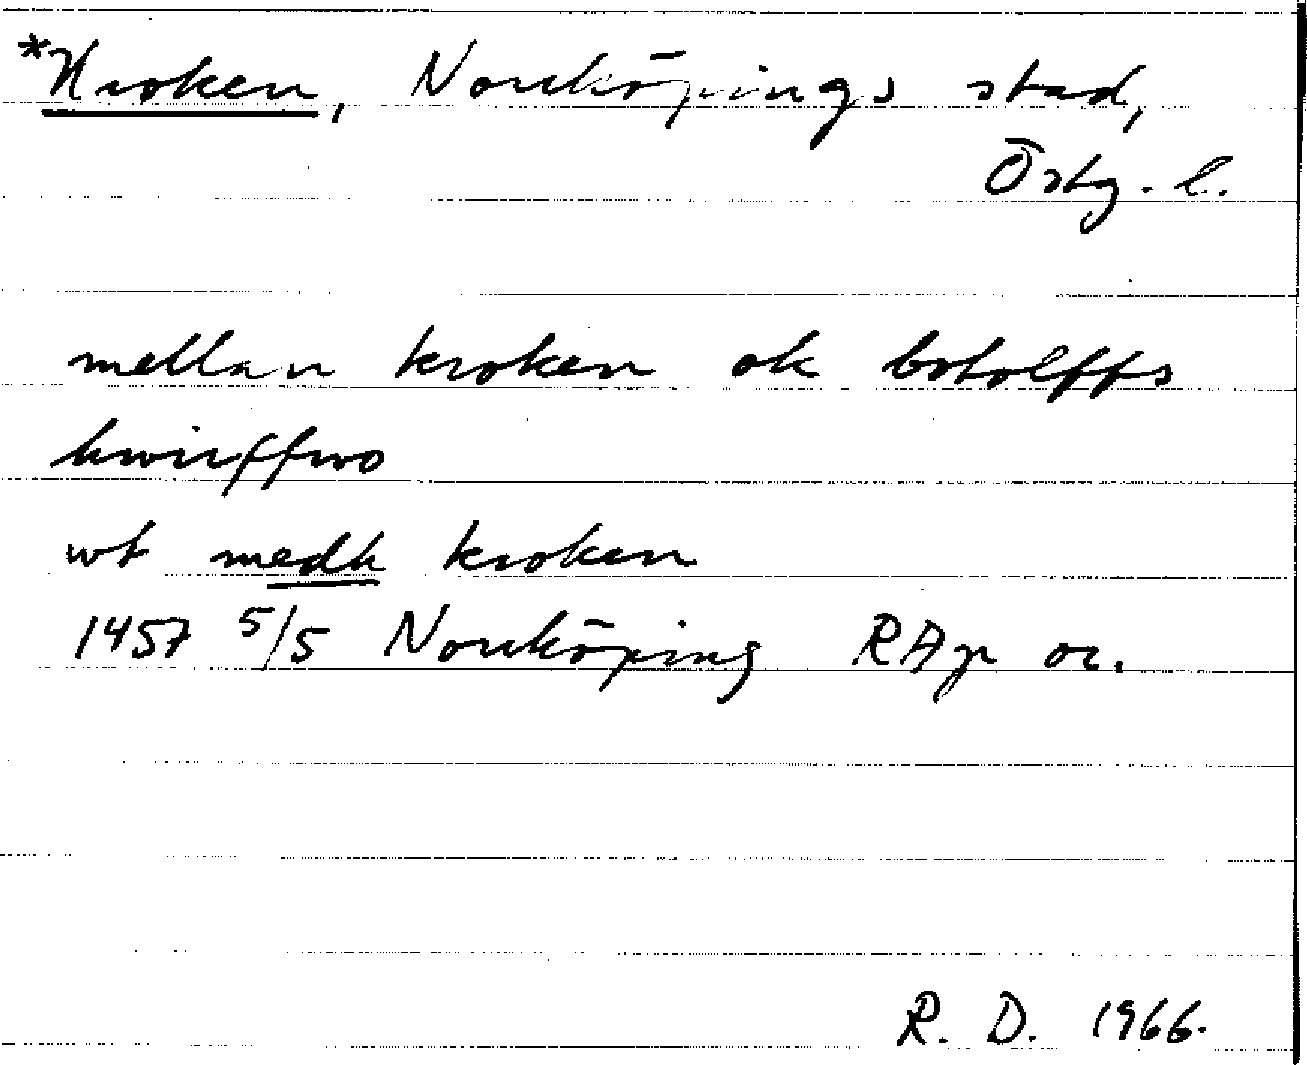 *Kroken, Norrköpings stad,
Östg. l.
mellan kroken ok botolffs
hwirffwo
wt medh kroken
1457 5/5 Norrköping RAp or.
R. D. 1966.